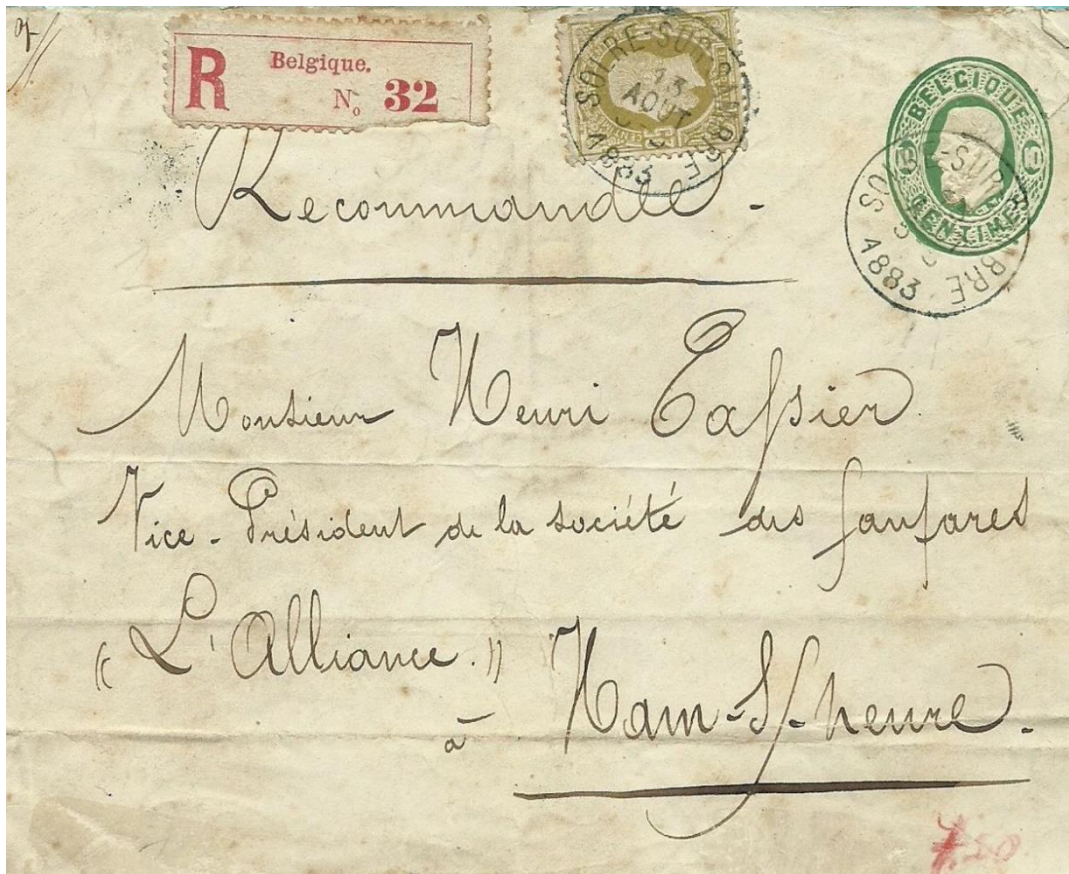 R Belgique.
No 32
SOLRE-SUR-SAMBRE
13
AOUT
1883
BELGIQUE
10
CENTIMES
SUR
BRE
1883
Recommandée.
Monsieur Henri Tassier
Vice-Président de la société des fanfares
"L'Alliance."
à Ham-S/-heure.